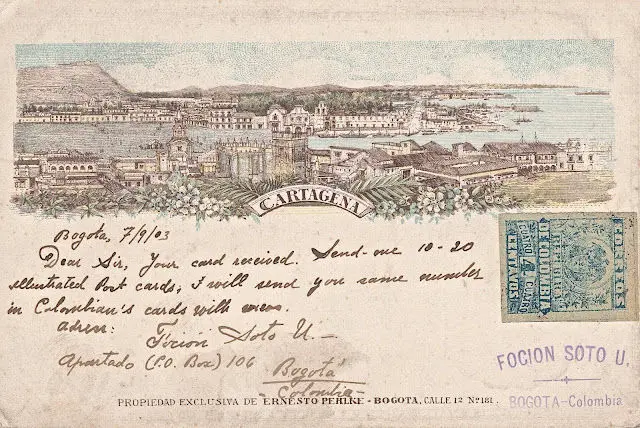 CARTAGENA
Bogota, 7/9/03
Dear Sir, Your card received. Send-me 10-20
illustrated Post cards; I will send you same number
in Colombian's cards with
adress:
Focion Soto U.-
Apartado (P.O. Box) 106
Bogotá
-Colombia-
CORREOS
REPUBLICA
DE COLOMBIA
CUATRO 4 CUATRO
CENTAVOS
FOCION SOTO U.
BOGOTA-Colombia
PROPIEDAD EXCLUSIVA DE ERNESTO PEHLKE - BOGOTA, CALLE 12 Nº 181.